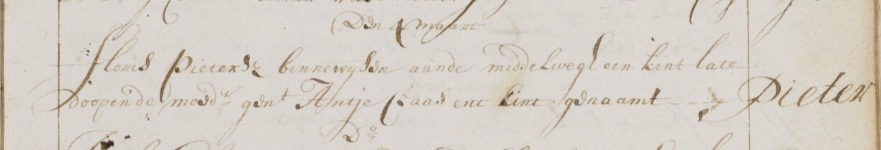 Den 4 maart
Floris Pietersz binnewijsen aande middelwegh een kint late
doopen de moedr gent Antje Claas ent kint genaamt Pieter
Do